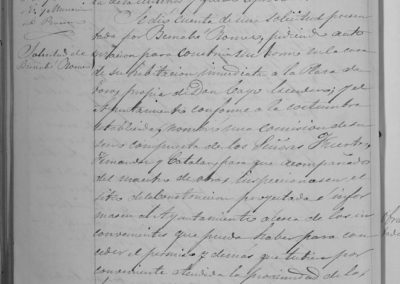 Solicitud de
Bernabé Romeo
Se dio cuenta de una solicitud presen
tada por Bernabé Romeo, pidiendo auto
rizacion para construir un horno en la casa
de su habitacion, inmediata a la Plaza de
propia de Don Cayo y el
Ayuntamiento conforme a la costumbre
establecida, nombró una comision de su
seno compuesta de los Señores Fuertes,
Fernandez y Catalan, para que acompañados
del maestro de obras inspeccionasen el
sitio de la construccion proyectada é infor
masen al Ayuntamiento acerca de los in
convenientes que pueda haber para con
ceder el permiso y demas que tubiera por
conveniente atendida la proximidad de los